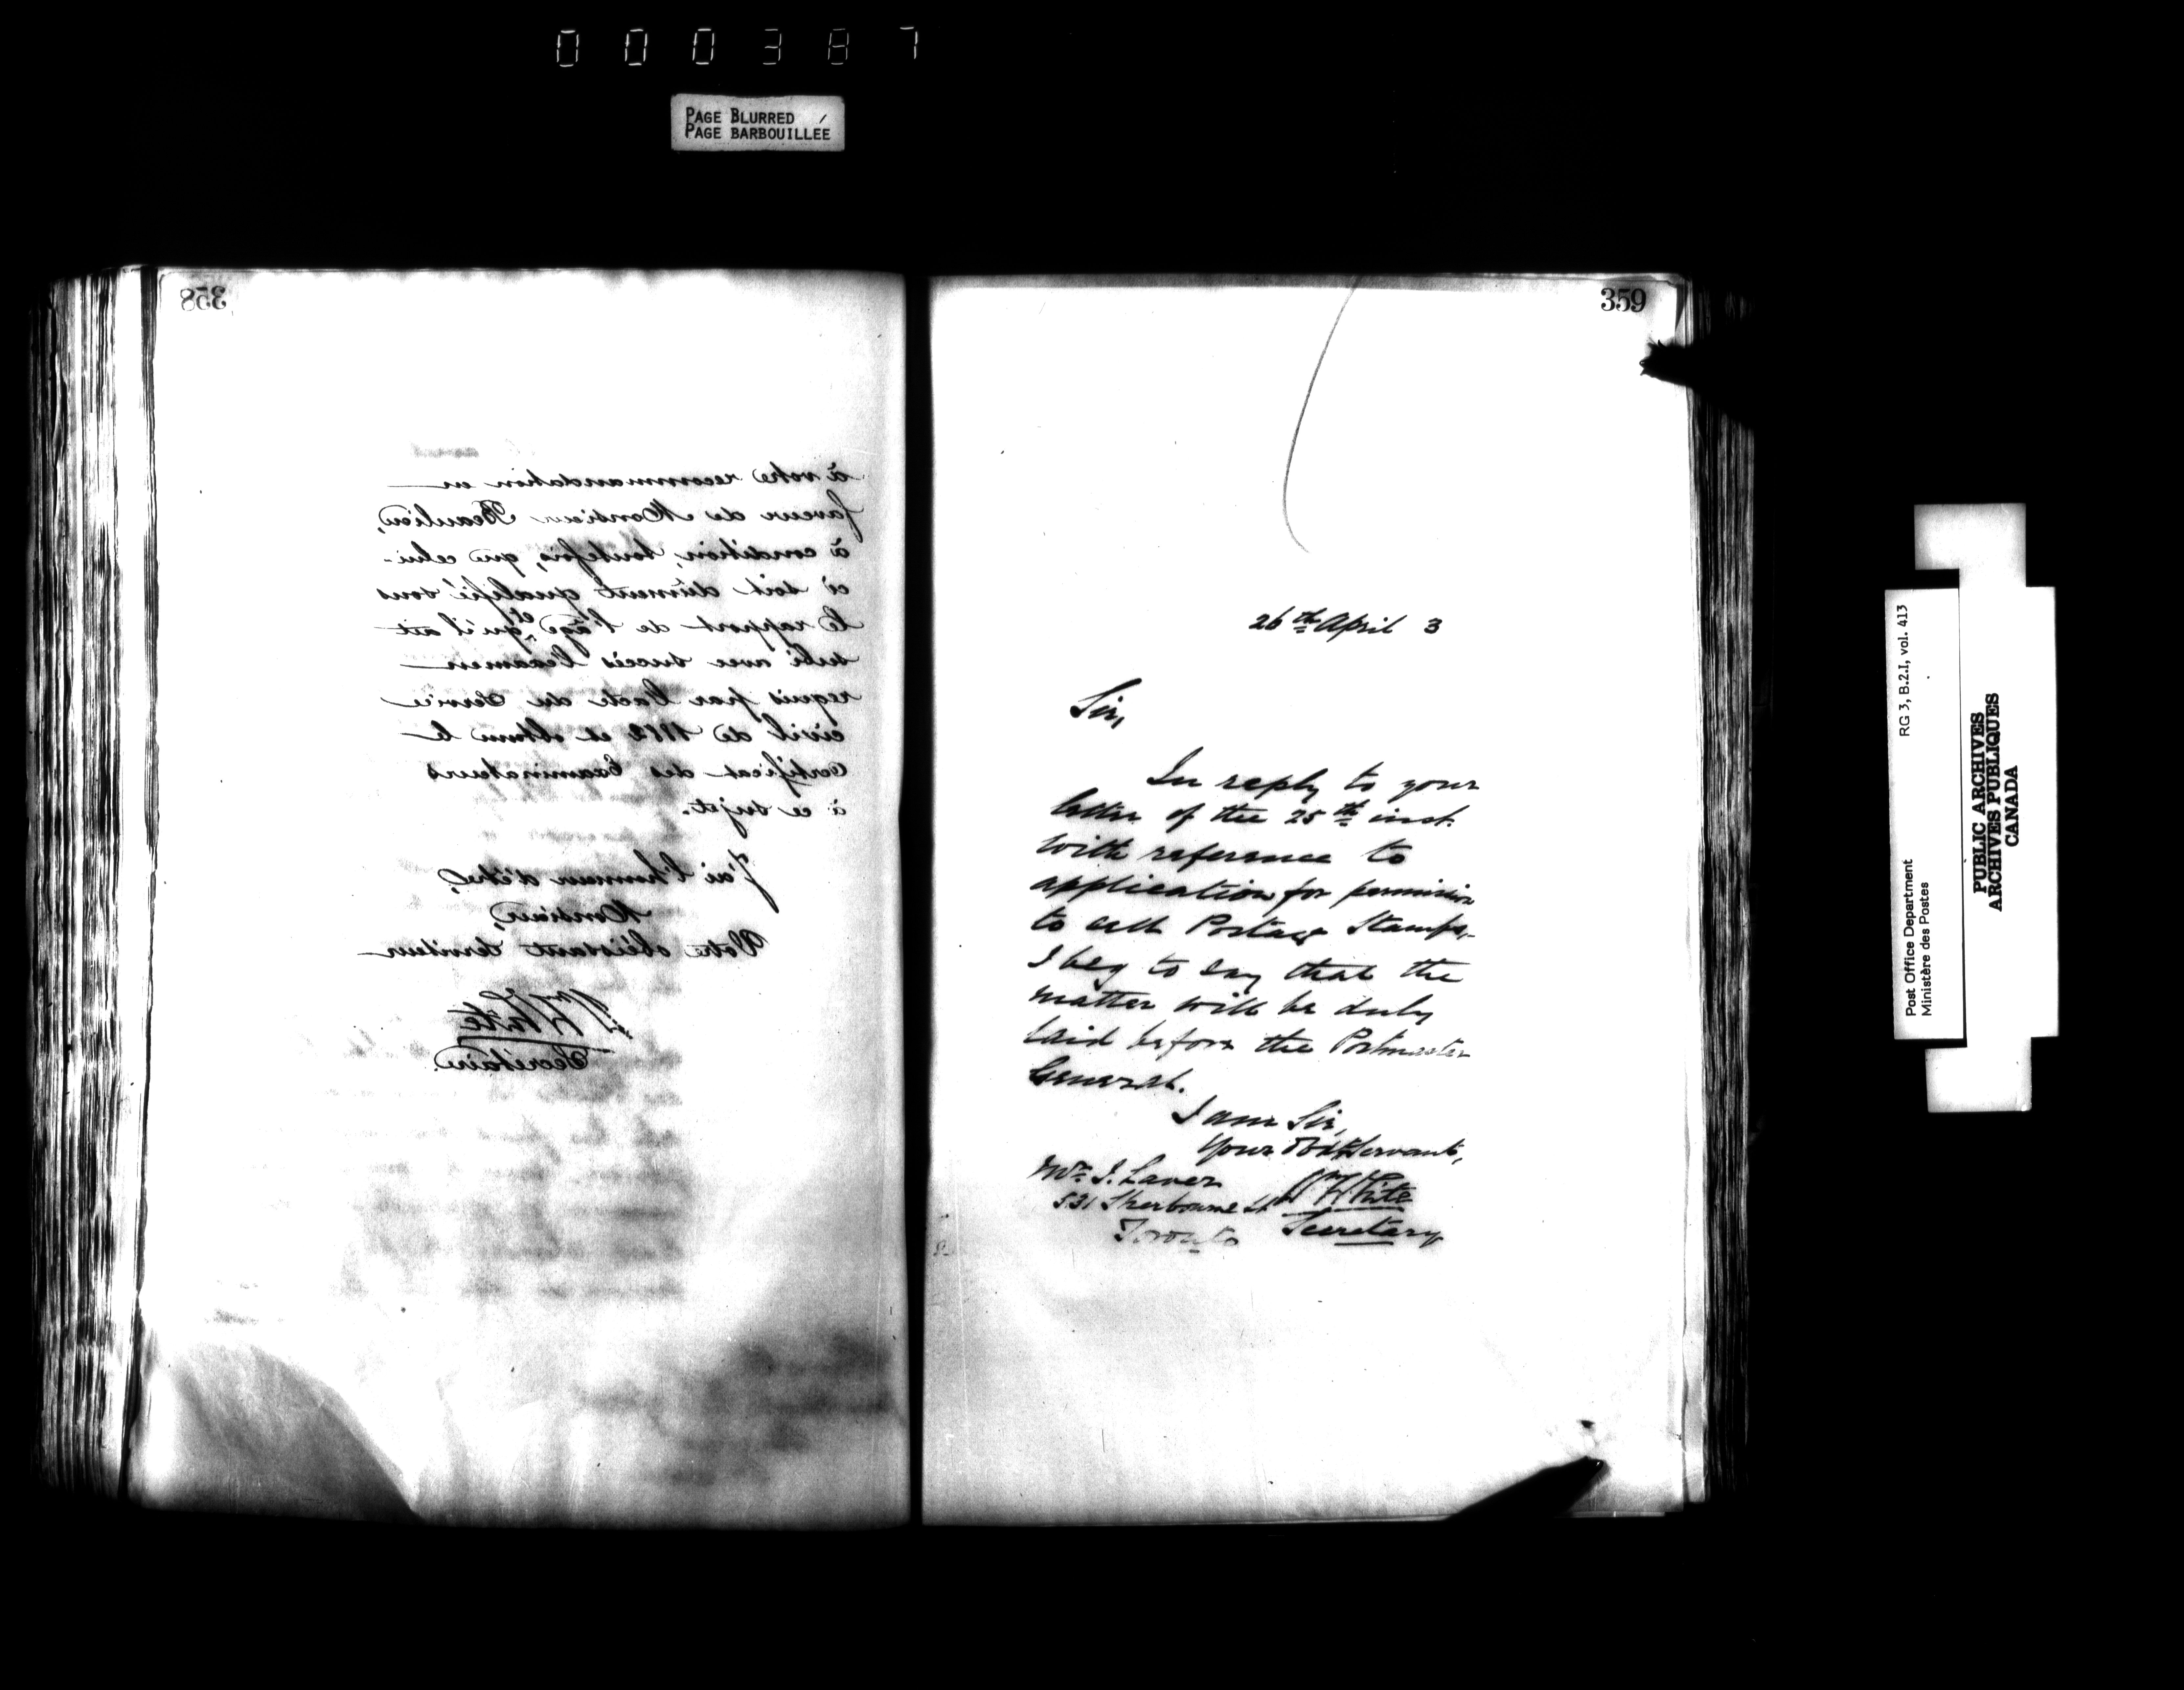 000387
PAGE BLURRED /
PAGE BARBOUILLÉE
358
à votre recommandation en
faveur de Monsieur Beaulieu,
à condition, toutefois, que celui-
ci soit dûment qualifié sous
le rapport de l'âge et qu'il ait
subi avec succès l'examen
requis par l'acte du Service
civil de 1882 et obtenu le
certificat des Examinateurs
à ce sujet.
J'ai l'honneur d'être,
Monsieur,
Votre obéissant serviteur
Wm White
Secrétaire
359
26th April 3
Sir,
In reply to your
letter of the 25th inst.
with reference to
application for permission
to sell Postage Stamps,
I beg to say that the
matter will be duly
laid before the Postmaster
General.
I am Sir,
Your Obdt Servant,
Mr. J. Laver
531 Sherbourne St
Toronto
Wm White
Secretary
RG 3, B.2.1, vol. 413
Post Office Department
Ministère des Postes
PUBLIC ARCHIVES
ARCHIVES PUBLIQUES
CANADA